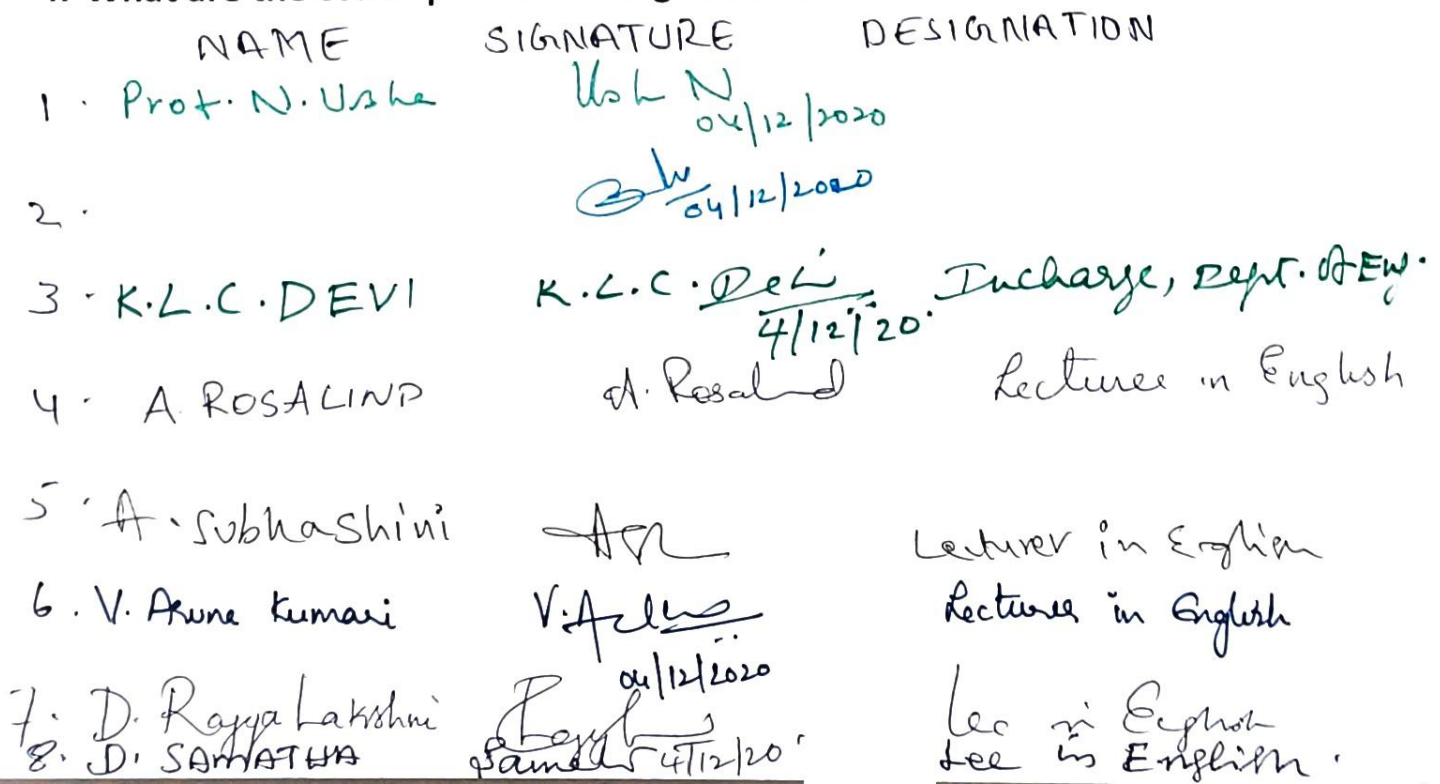 NAME SIGNATURE DESIGNATION
1. Prof. N. Usha Ush N
04/12/2020
2. 04/12/2020
3. K.L.C. DEVI K.L.C. Devi Incharge, Dept. of Eng.
4/12/20.
4. A. ROSALIND A. Rosalind Lecturer in English
5. A. Subhashini Lecturer in English
6. V. Aruna Kumari Lecturer in English
04/12/2020
7. D. Rajya Lakshmi Lec in English
8. D. SAMATHA Samatha 4/12/20 Lec in English.